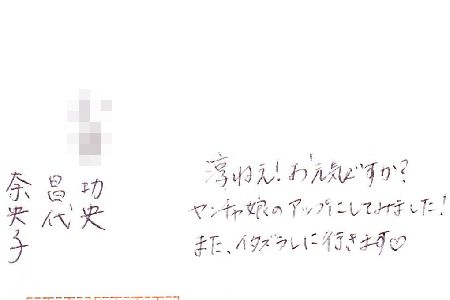 淳ねえ!お元気ですか?
ヤンチャ娘のアップにしてみました!
また、イタズラしに行きます♡
功央
昌代
奈央子